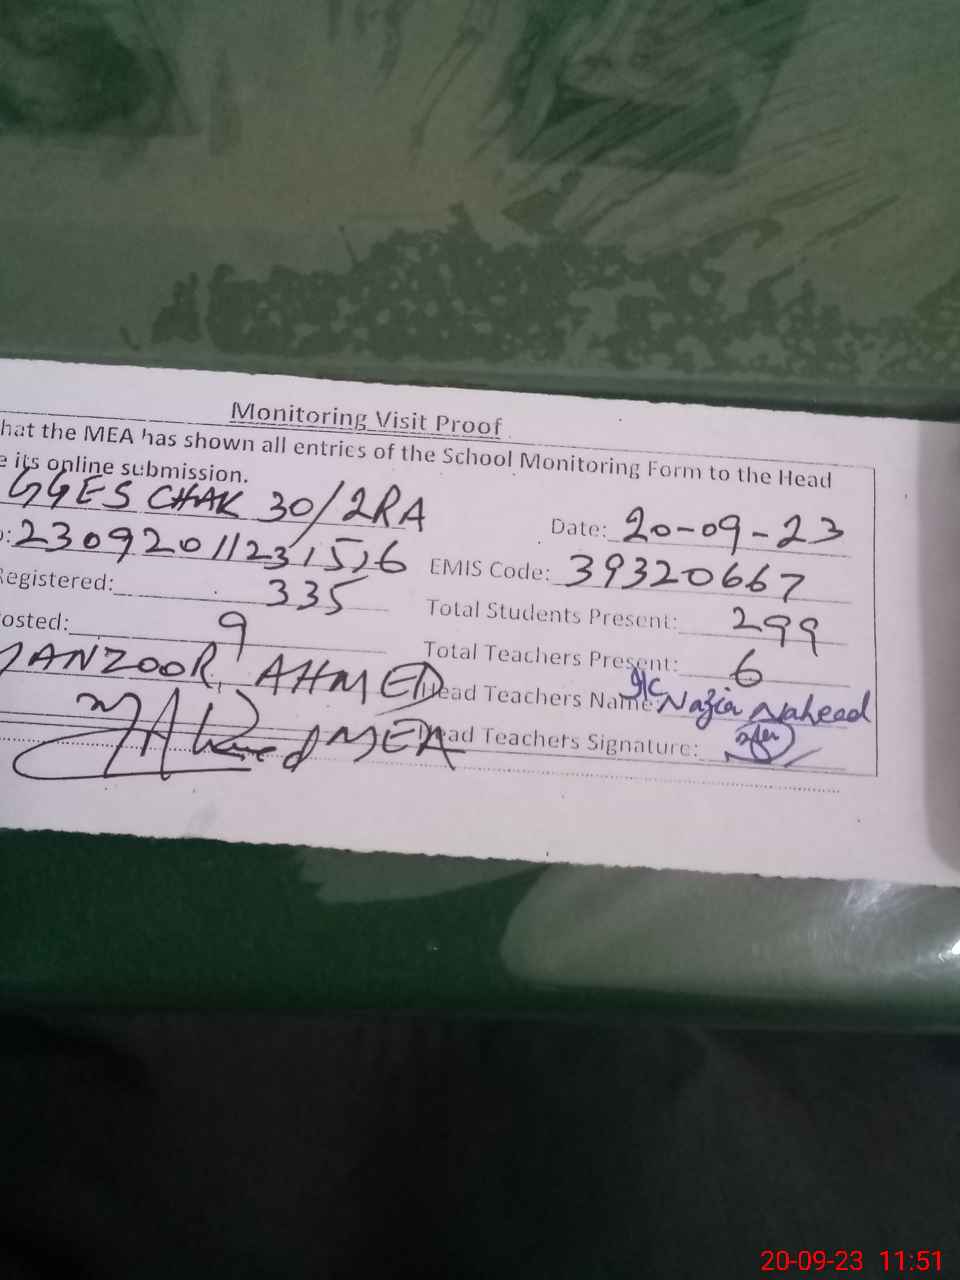 Monitoring Visit Proof
hat the MEA has shown all entries of the School Monitoring Form to the Head
e its online submission.
GGES CHAK 30/2RA Date: 20-09-23
:230920112315 EMIS Code: 39320667
Registered: 335 Total Students Present: 299
osted: 9 Total Teachers Present: 6
MANZOOR AHMED Head Teachers Name: I/C Nazia Naheed
MEA ead Teachers Signature:
20-09-23 11:51